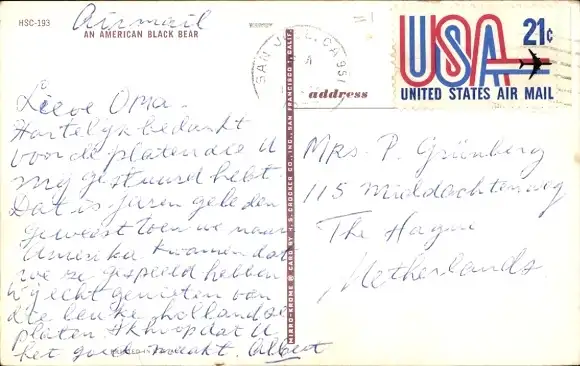 HSC-193
Airmail
AN AMERICAN BLACK BEAR
Lieve Oma.
Hartelyk bedankt
voor de platen die U
my gestuurd hebt.
Dat is jaren geleden
geweest toen we naar
Amerika kwamen dat
we ze gespeeld hebben
Wy echt genieten van
die leuke hollandse
platen. Ik hoop dat U
het goed maakt. Albert
MIRRO-KROME ® CARD BY H. S. CROCKER CO., INC., SAN FRANCISCO 1, CALIF.
SAN JOSE, CA 951
address
USA 21c
UNITED STATES AIR MAIL
Mrs. P. Grünberg
115 Middachtenweg
The Hague
Netherlands